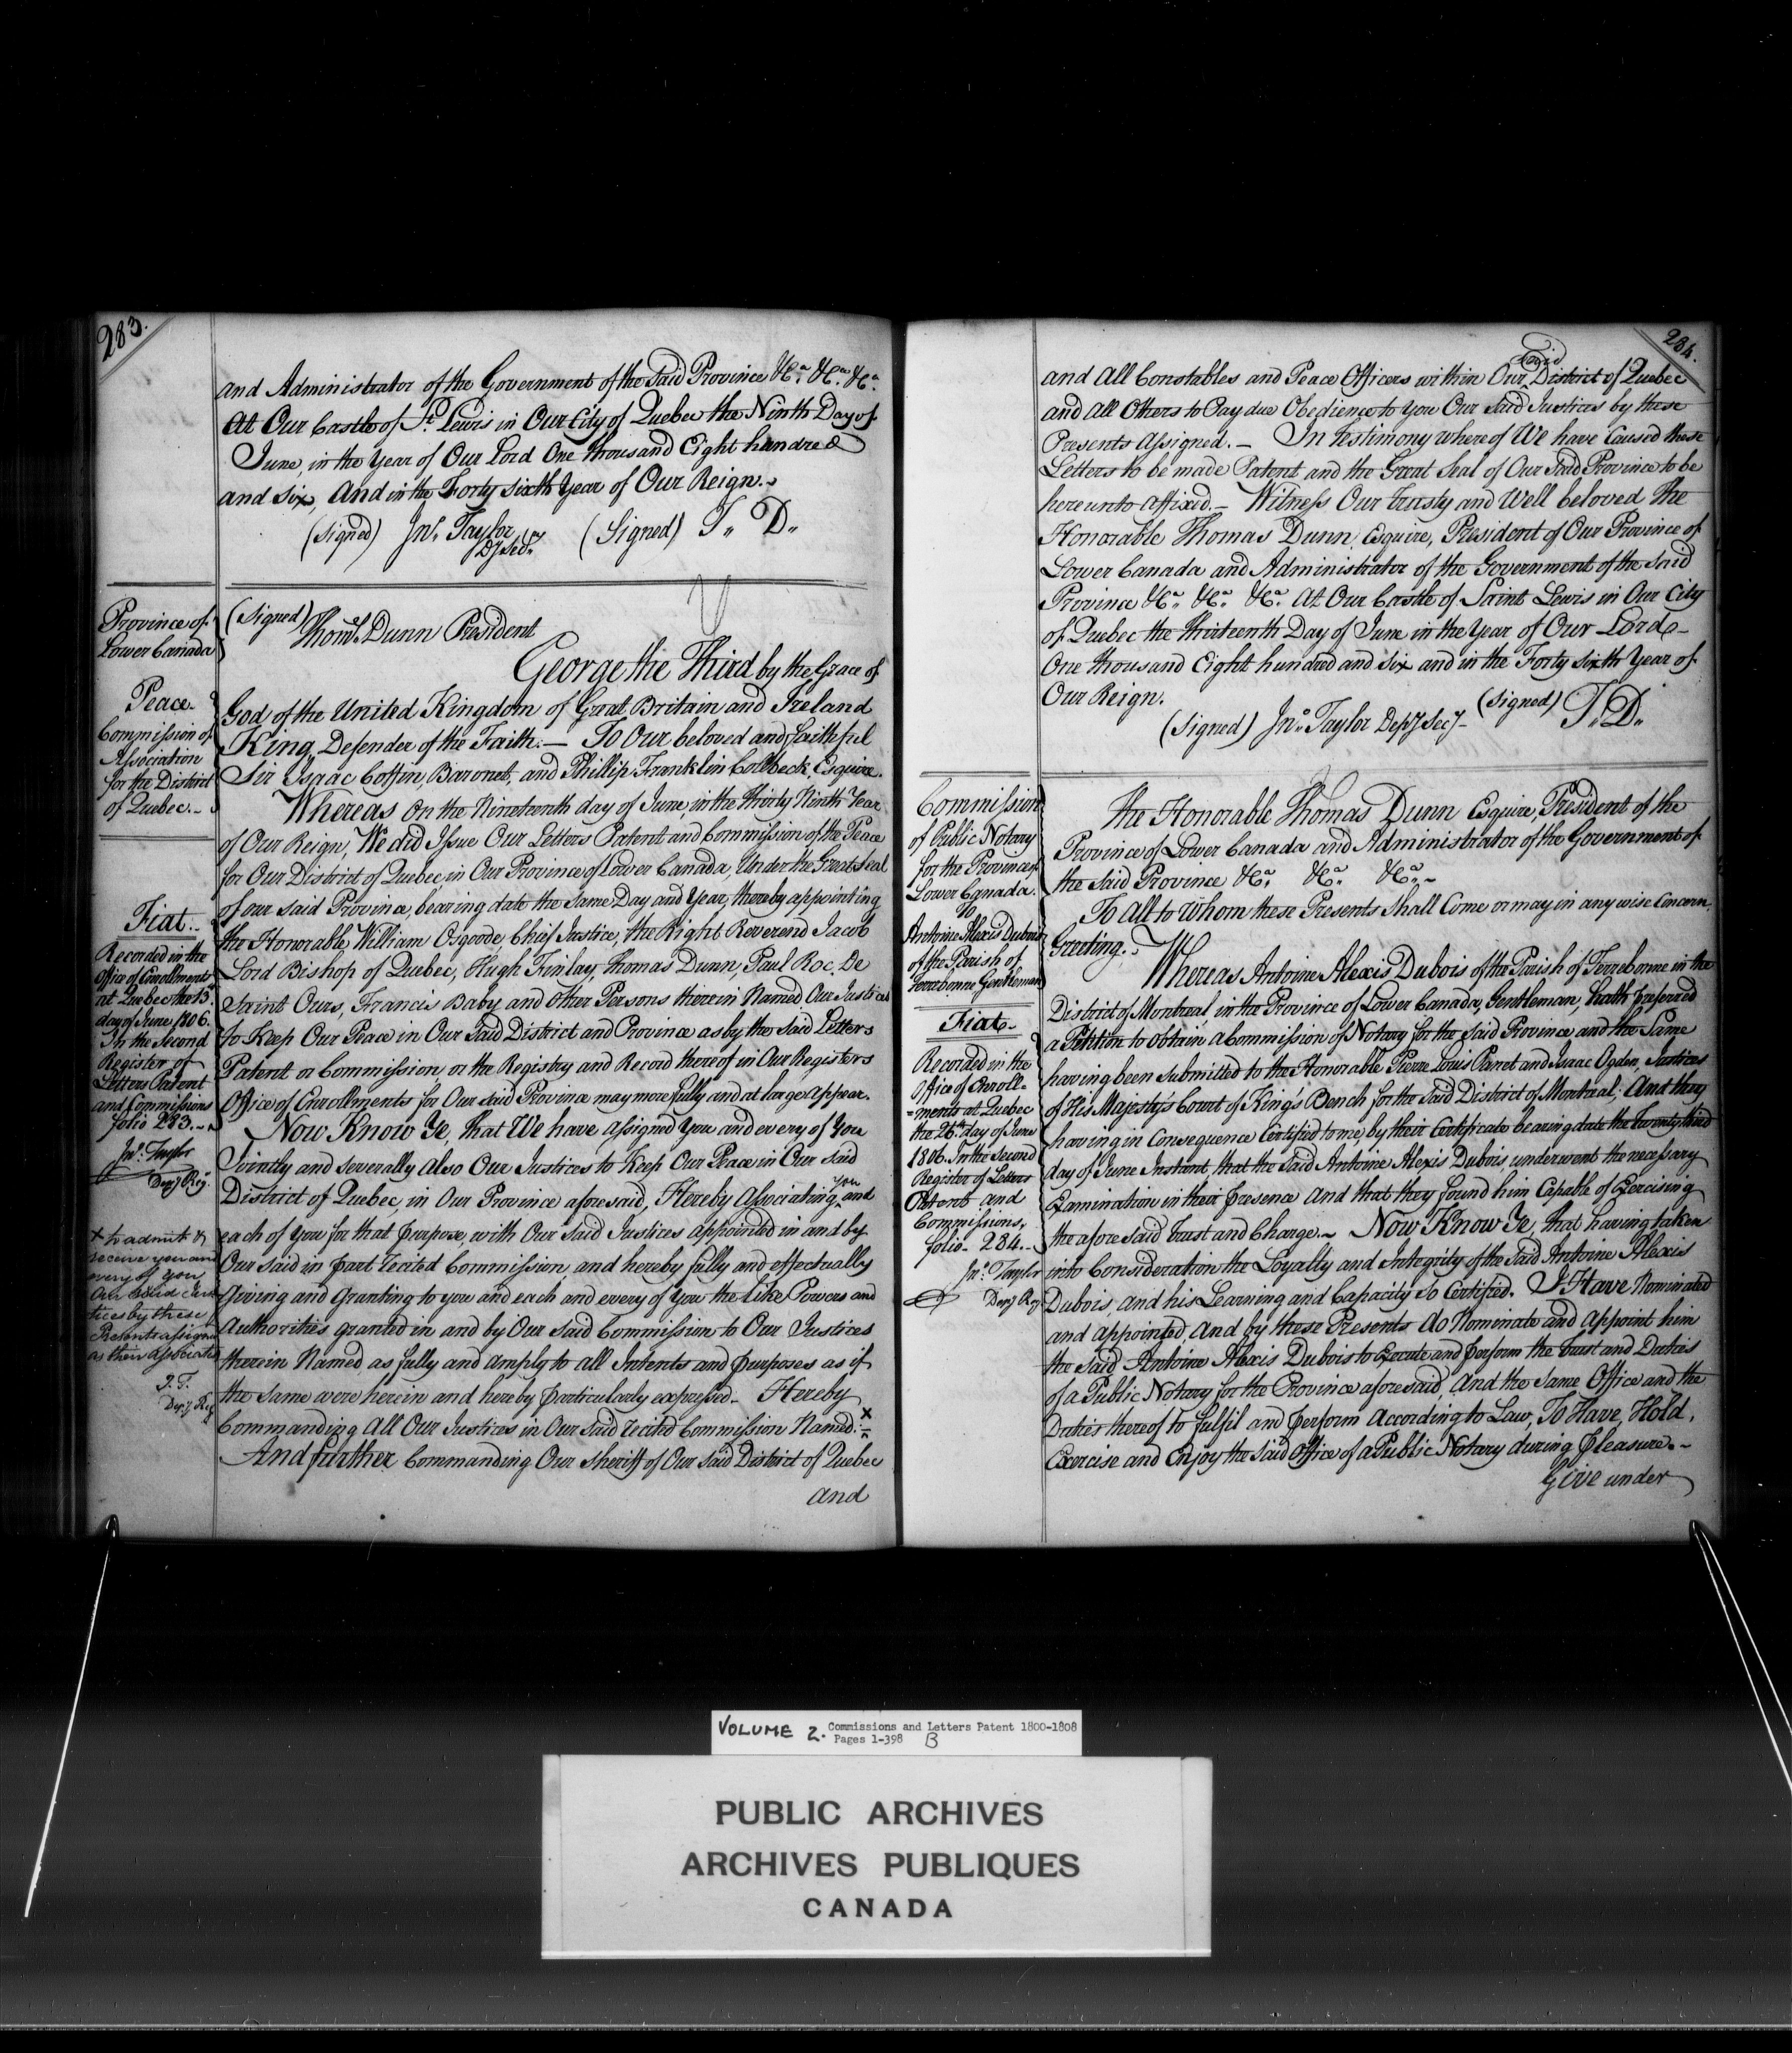 283.
and Administrator of the Government of the Said Province &Ca. &Ca. &Ca.
At Our Castle of St. Lewis in Our City of Quebec the Ninth Day of
June, in the Year of Our Lord One thousand Eight hundred
and six, And in the Forty sixth Year of Our Reign.
(Signed) Jno. Taylor (Signed) T,, D,,
Dy Secy.
Province of
Lower Canada
Peace.
Commission of
Association
for the District
of Quebec.
Fiat.
Recorded in the
Office of Enrollments
at Quebec the 13th
day of June 1806.
In the Second
Register of
Letters Patent
and Commissions
folio 283.
Jno. Taylor
Depy Reg.
x to admit &
receive you and
every of you
Our said Jus
tices by these
Presents assigned
as their Associates
J. T.
Depy Reg
(Signed)
Thoms. Dunn President
George the Third by the Grace of
God of the United Kingdom of Great Britain and Ireland
King, Defender of the Faith. — To Our beloved and faithful
Sir Isaac Coffin, Baronet, and Phillip Franklin Colbeck, Esquire.
Whereas on the Nineteenth day of June, in the thirty Ninth Year
of Our Reign, We did Issue Our Letters Patent and Commission of the Peace
for Our District of Quebec in Our Province of Lower Canada, Under the Great Seal
of our said Province, bearing date the same Day and Year, thereby appointing
the Honorable William Osgoode, Chief Justice, the Right Reverend Jacob
Lord Bishop of Quebec, Hugh Finlay, Thomas Dunn, Paul Roc De
Saint Ours, Francis Baby and other Persons therein Named Our Justices
to Keep Our Peace in Our Said District and Province as by the said Letters
Patent or Commission or the Registry and Record thereof in Our Registers
Office of Enrollments for Our said Province may more fully and at large appear.
Now Know Ye, that We have assigned You and every of You
Jointly and severally also Our Justices to Keep Our Peace in Our said
District of Quebec, in Our Province aforesaid, Hereby Associating you and
each of you for that purpose, with Our said Justices appointed in and by
Our said in part recited Commission, and hereby fully and effectually
Giving and Granting to you and each and every of you the like Powers and
Authorities granted in and by Our said Commission to Our Justices
therein Named, as fully and amply to all Intents and purposes as if
the same were herein and hereby particularly expressed. Hereby
Commanding All Our Justices in Our said recited Commission Named: x
And further Commanding Our Sheriff of Our said District of Quebec
and
284.
and All Constables and Peace Officers within Our said District of Quebec
and all Others to Pay due Obedience to You Our said Justices by these
Presents Assigned. — In testimony whereof We have Caused these
Letters to be made Patent and the Great Seal of Our Said Province to be
hereunto affixed. — Witness Our trusty and Well beloved The
Honorable Thomas Dunn Esquire, President of Our Province of
Lower Canada and Administrator of the Government of the Said
Province &Ca. &Ca. &Ca. At Our Castle of Saint Lewis in Our City
of Quebec the thirteenth Day of June in the Year of Our Lord
One thousand Eight hundred and six and in the Forty sixth Year of
Our Reign.
(Signed) Jno. Taylor Depy Secy (Signed) T,, D,,
Commission
of Public Notary
for the Province of
Lower Canada.
to
Antoine Alexis Dubois
of the Parish of
Terrebonne Gentleman
Fiat.
Recorded in the
Office of Enroll=
=ments at Quebec
the 26th day of June
1806. In the Second
Register of Letters
Patent and
Commissions,
folio 284.
Jno. Taylor
Depy Reg
The Honorable Thomas Dunn Esquire, President of the
Province of Lower Canada and Administrator of the Government of
the said Province &Ca. &Ca. &Ca.
To All to Whom these Presents shall Come or may in any wise Concern,
Greeting.
Whereas Antoine Alexis Dubois of the Parish of Terrebonne in the
District of Montreal, in the Province of Lower Canada, Gentleman, hath preferred
a Petition to obtain a Commission of Notary for the said Province and the Same
having been submitted to the Honorable Pierre Louis Panet and Isaac Ogden, Justices
of His Majesty's Court of King's Bench for the Said District of Montreal; And they
having in Consequence Certified to me, by their Certificate bearing date the twenty third
day of June Instant, that the said Antoine Alexis Dubois, underwent the necessary
Examination in their presence and that they found him Capable of Exercising
the aforesaid trust and Charge. Now Know Ye, that having taken
into Consideration the Loyalty and Integrity of the Said Antoine Alexis
Dubois and his Learning and Capacity so Certified. I Have Nominated
and appointed, And by these Presents do Nominate and Appoint him
the said Antoine Alexis Dubois to Execute and perform the trust and Duties
of a Public Notary for the Province aforesaid, And the same Office and the
Duties thereof to fulfil and perform According to Law, To Have, Hold,
Exercise and Enjoy the Said Office of a Public Notary during pleasure.
Give under
VOLUME 2. Commissions and Letters Patent 1800-1808
Pages 1-398 B
PUBLIC ARCHIVES
ARCHIVES PUBLIQUES
CANADA